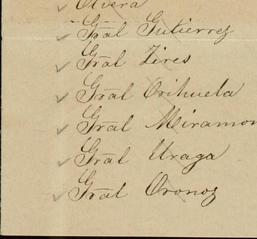 Olvera
Gral Gutierrez
Gral Zires
Gral Orihuela
Gral Miramon
Gral Uraga
Gral Oronoz